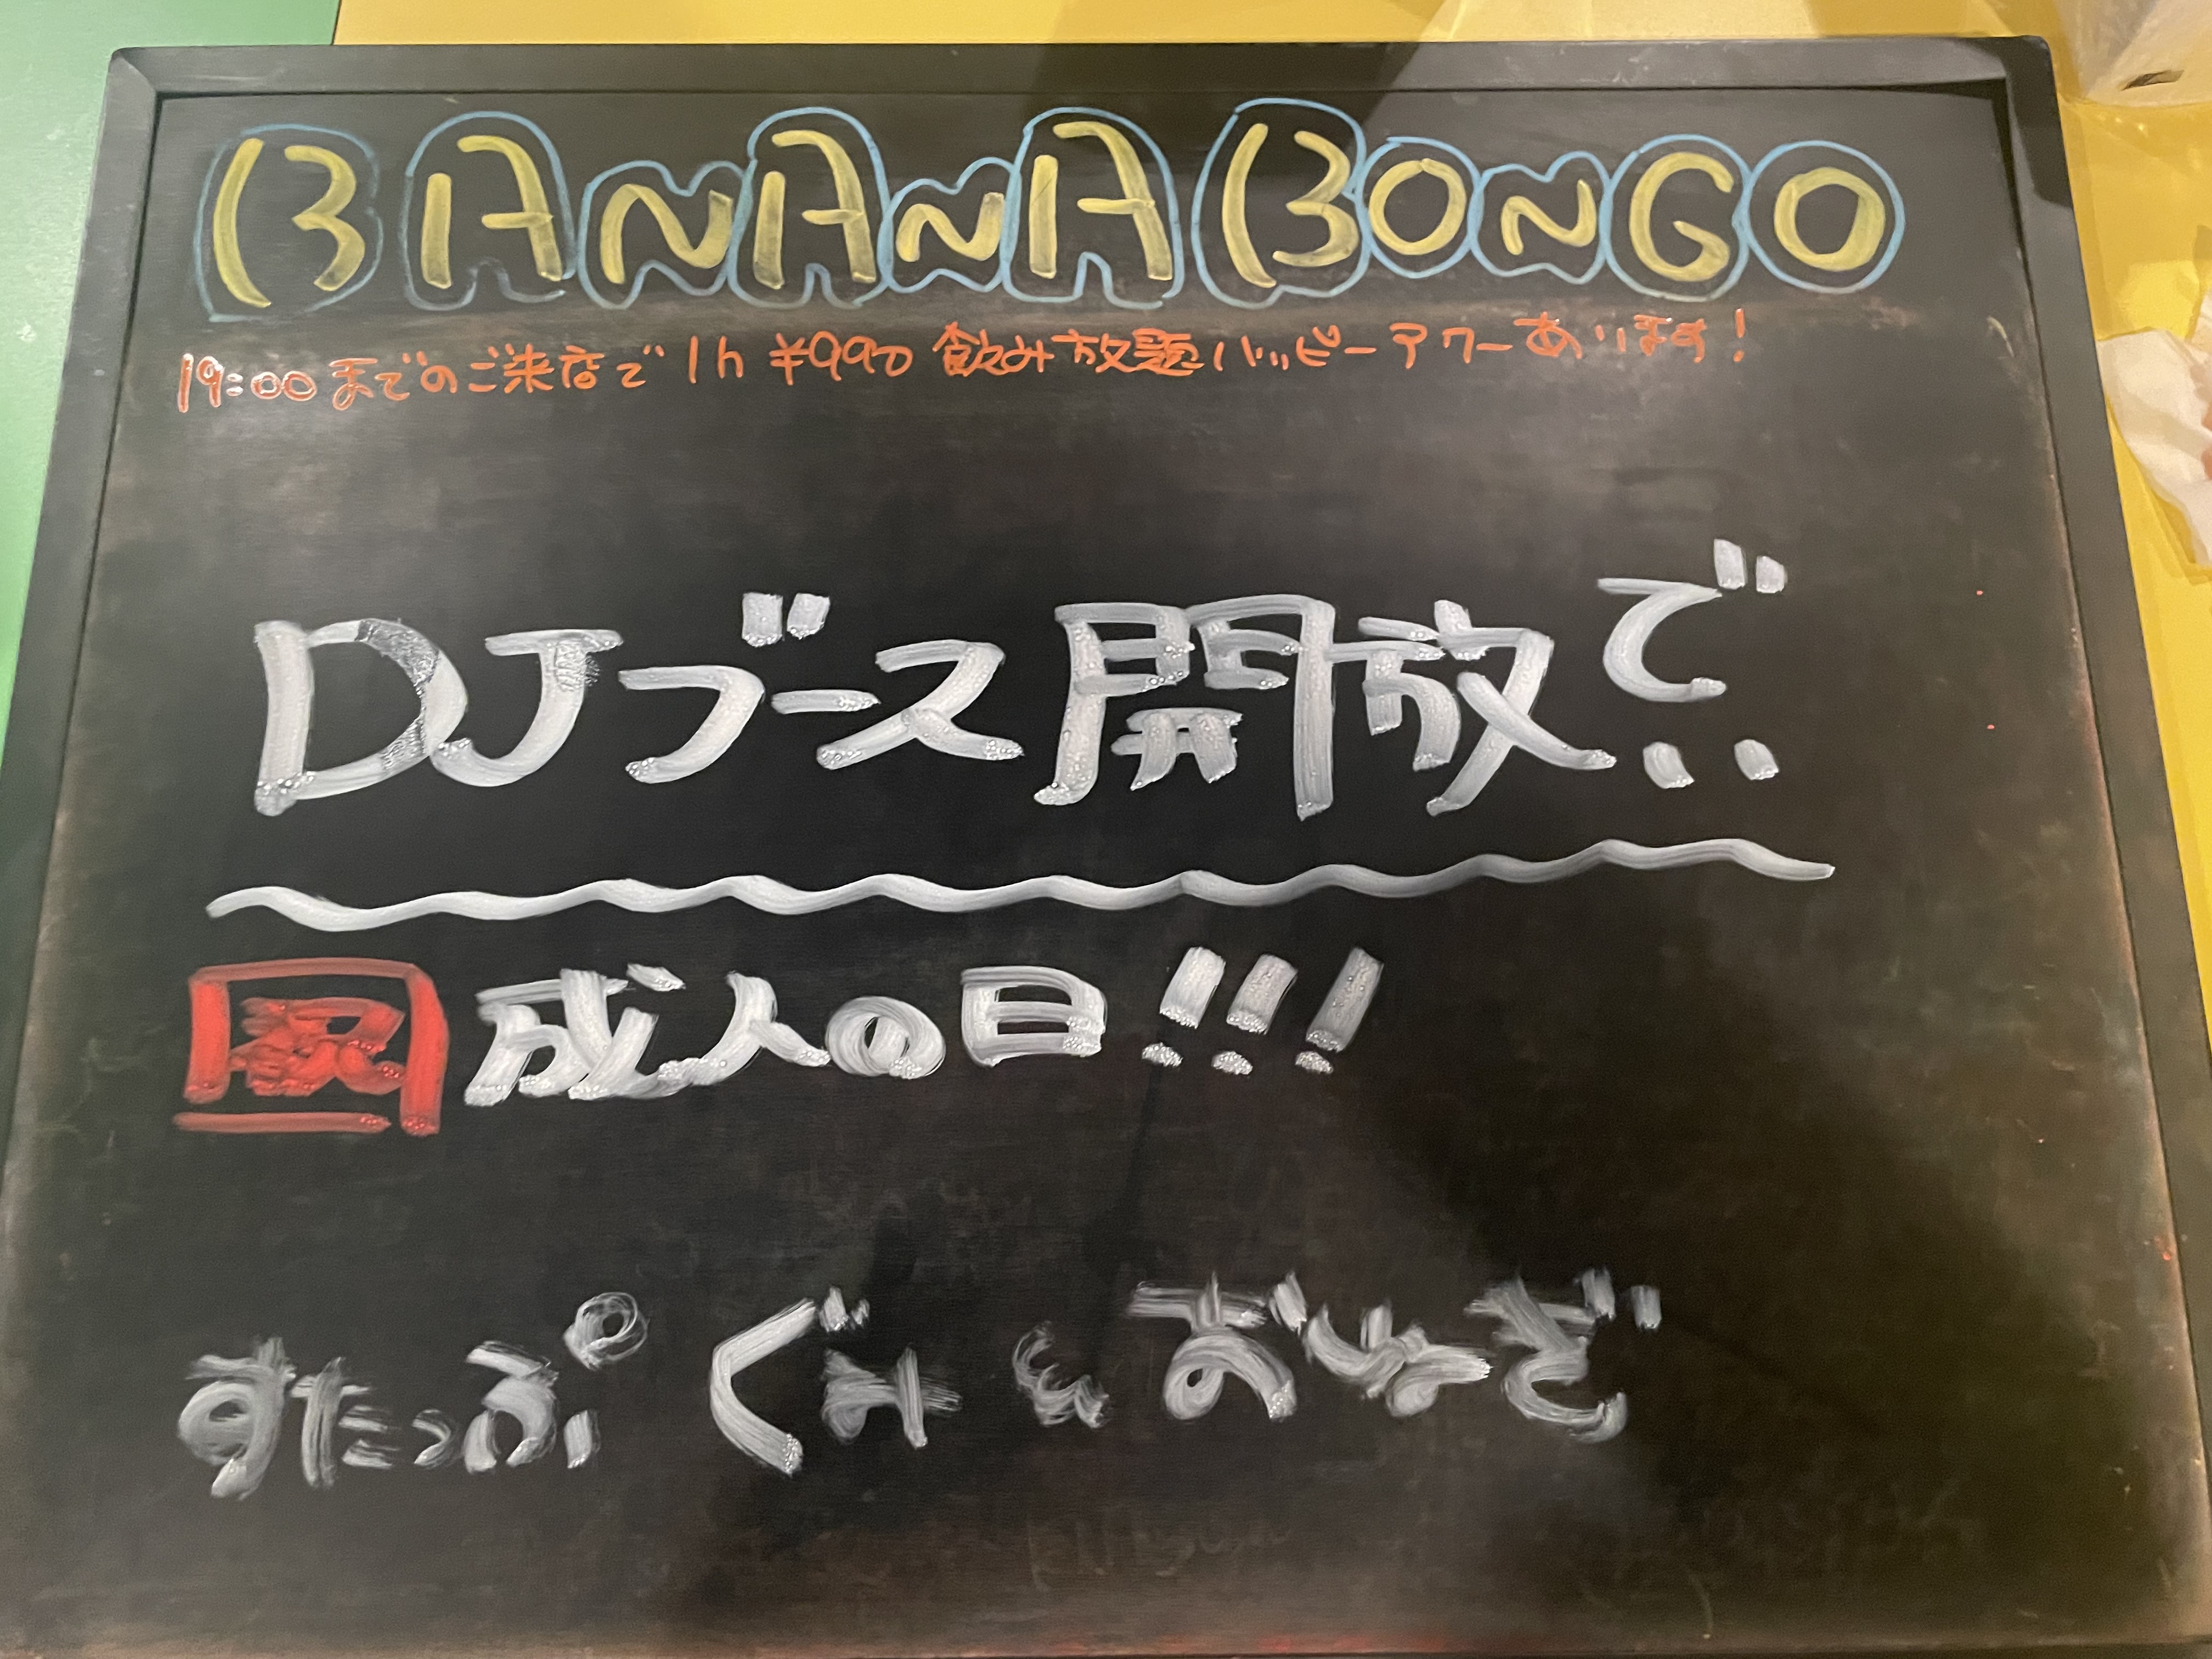 BANANA BONGO
19:00までのご来店で 1h ¥990 飲み放題ハッピーアワーあります!
DJブース開放で
成人の日!!!
すたっぷ